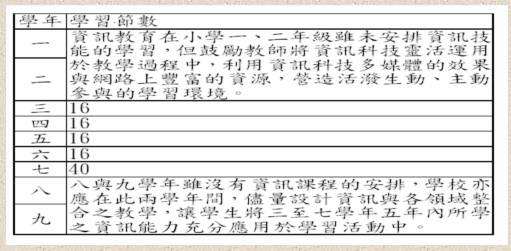 學年 學習節數
一
資訊教育在小學一、二年級雖未安排資訊技
能的學習，但鼓勵教師將資訊科技靈活運用
二
於教學過程中，利用資訊科技多媒體的效果
與網路上豐富的資源，營造活潑生動、主動
參與的學習環境。
三 16
四 16
五 16
六 16
七 40
八
八與九學年雖沒有資訊課程的安排，學校亦
應在此兩學年間，儘量設計資訊與各領域整
九
合之教學，讓學生將三至七學年五年內所學
之資訊能力充分應用於學習活動中。